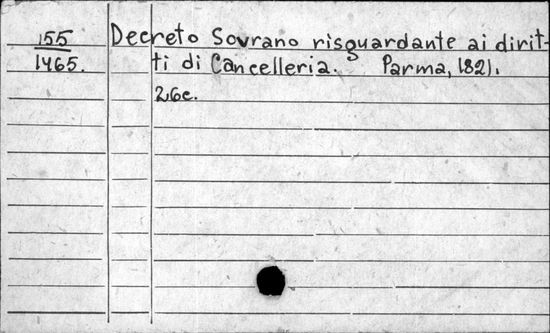 155
1465.
Decreto Sovrano risguardante ai dirit-
ti di Cancelleria. Parma, 1821.
26c.